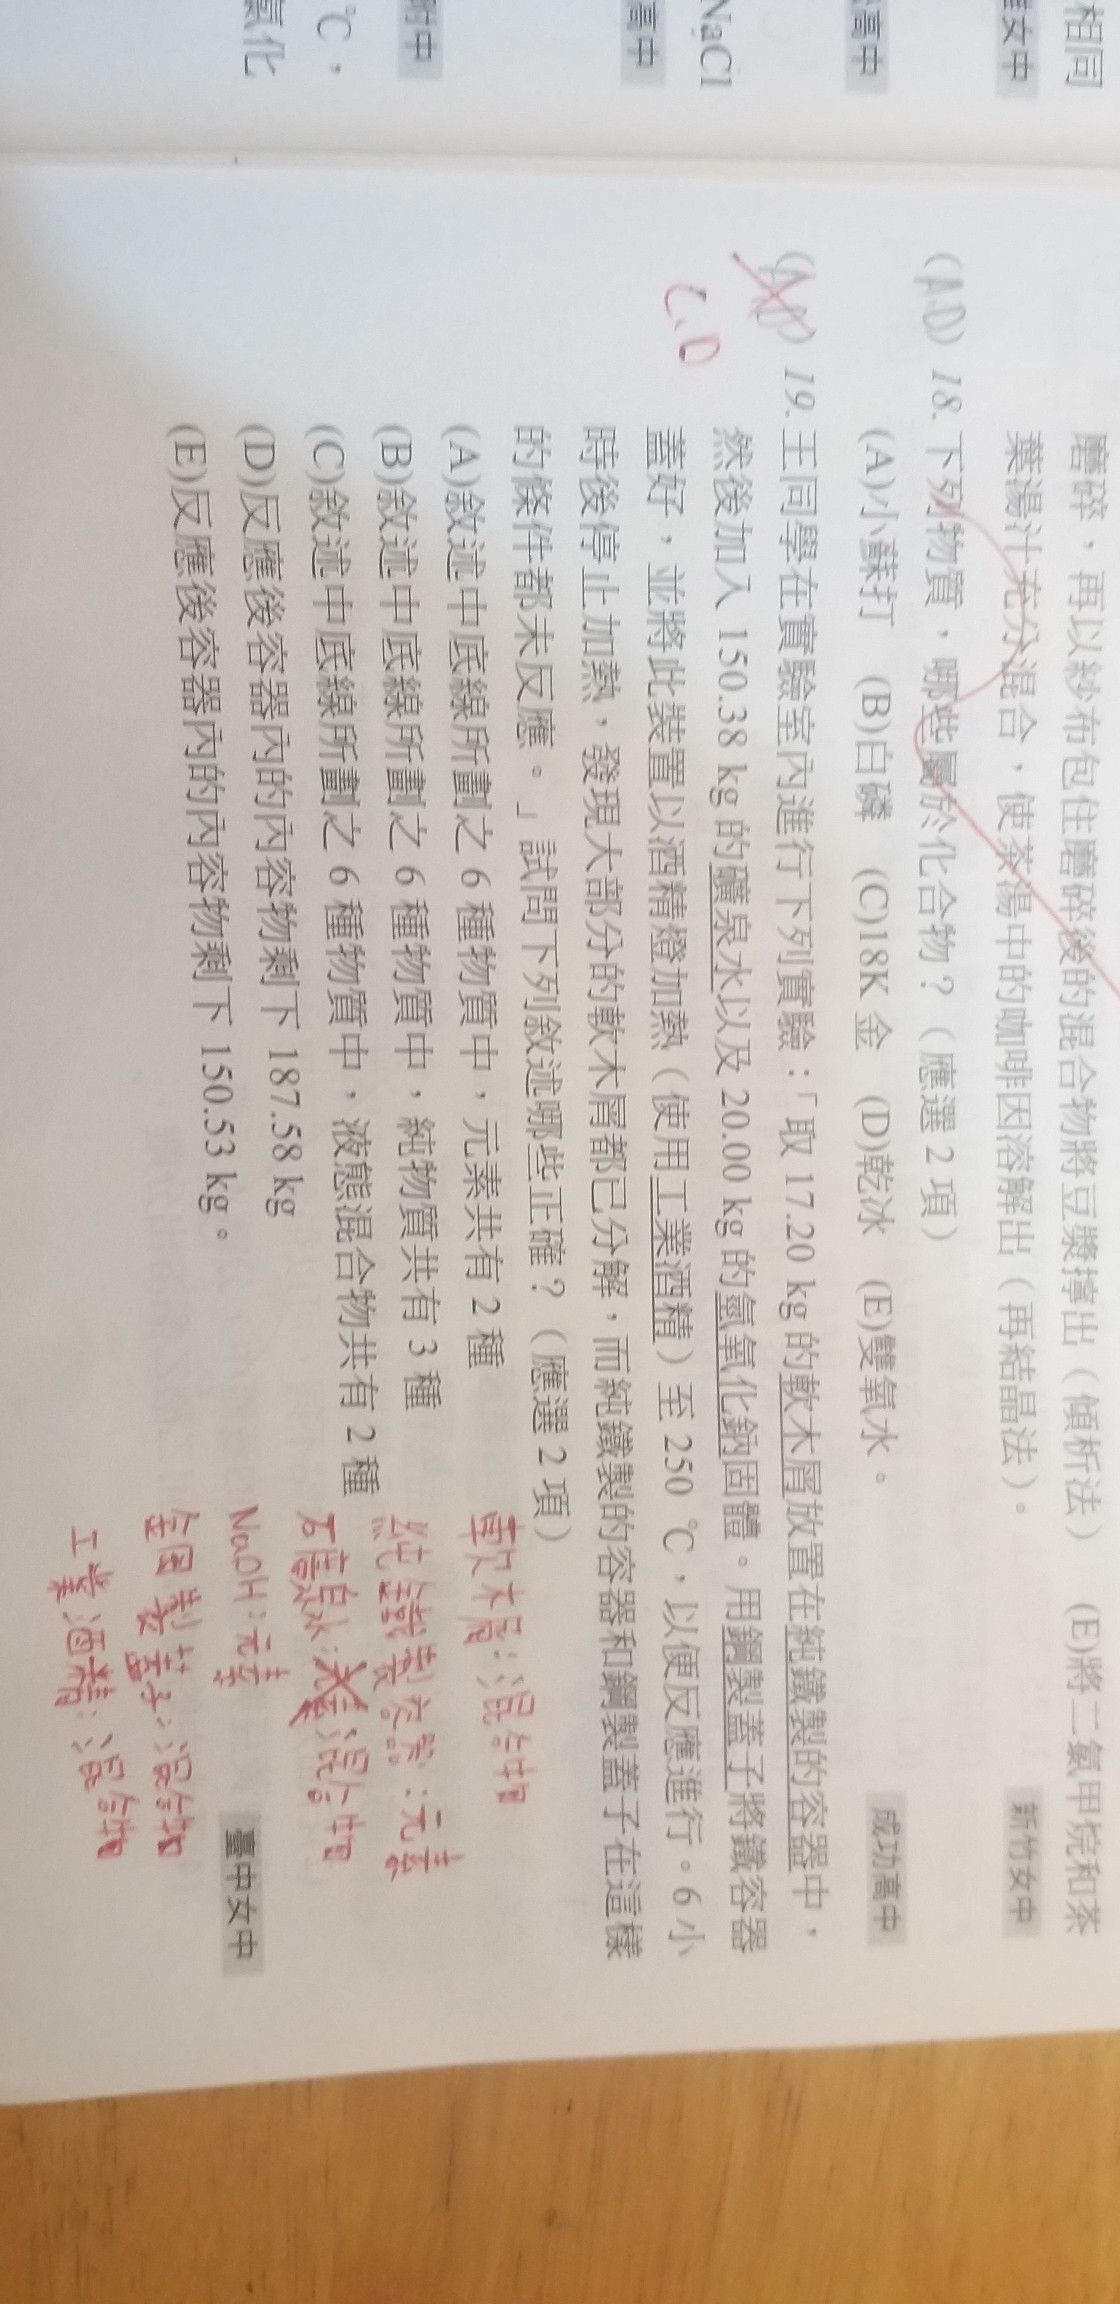 相同
女中
高中
NaCl
高中
附中
℃，
氯化
磨碎，再以紗布包住磨碎後的混合物將豆漿擰出（傾析法） (E)將二氯甲烷和茶
葉湯汁充分混合，使茶湯中的咖啡因溶解出（再結晶法）。
新竹女中
(A.D) 18. 下列物質，哪些屬於化合物？（應選 2 項）
(A)小蘇打 (B)白磷 (C)18K 金 (D)乾冰 (E)雙氧水。
成功高中
C、D
19. 王同學在實驗室內進行下列實驗：「取 17.20 kg 的軟木屑放置在純鐵製的容器中，
然後加入 150.38 kg 的礦泉水以及 20.00 kg 的氫氧化鈉固體。用鋼製蓋子將鐵容器
蓋好，並將此裝置以酒精燈加熱（使用工業酒精）至 250 ℃，以便反應進行。6 小
時後停止加熱，發現大部分的軟木屑都已分解，而純鐵製的容器和鋼製蓋子在這樣
的條件都未反應。」試問下列敘述哪些正確？（應選 2 項）
(A)敘述中底線所劃之 6 種物質中，元素共有 2 種
(B)敘述中底線所劃之 6 種物質中，純物質共有 3 種
(C)敘述中底線所劃之 6 種物質中，液態混合物共有 2 種
(D)反應後容器內的內容物剩下 187.58 kg
(E)反應後容器內的內容物剩下 150.53 kg。
軟木屑：混合物
純鐵製容器：元素
混合物
NaOH：元素
製蓋子：混合物
工業酒精：混合物
臺中女中